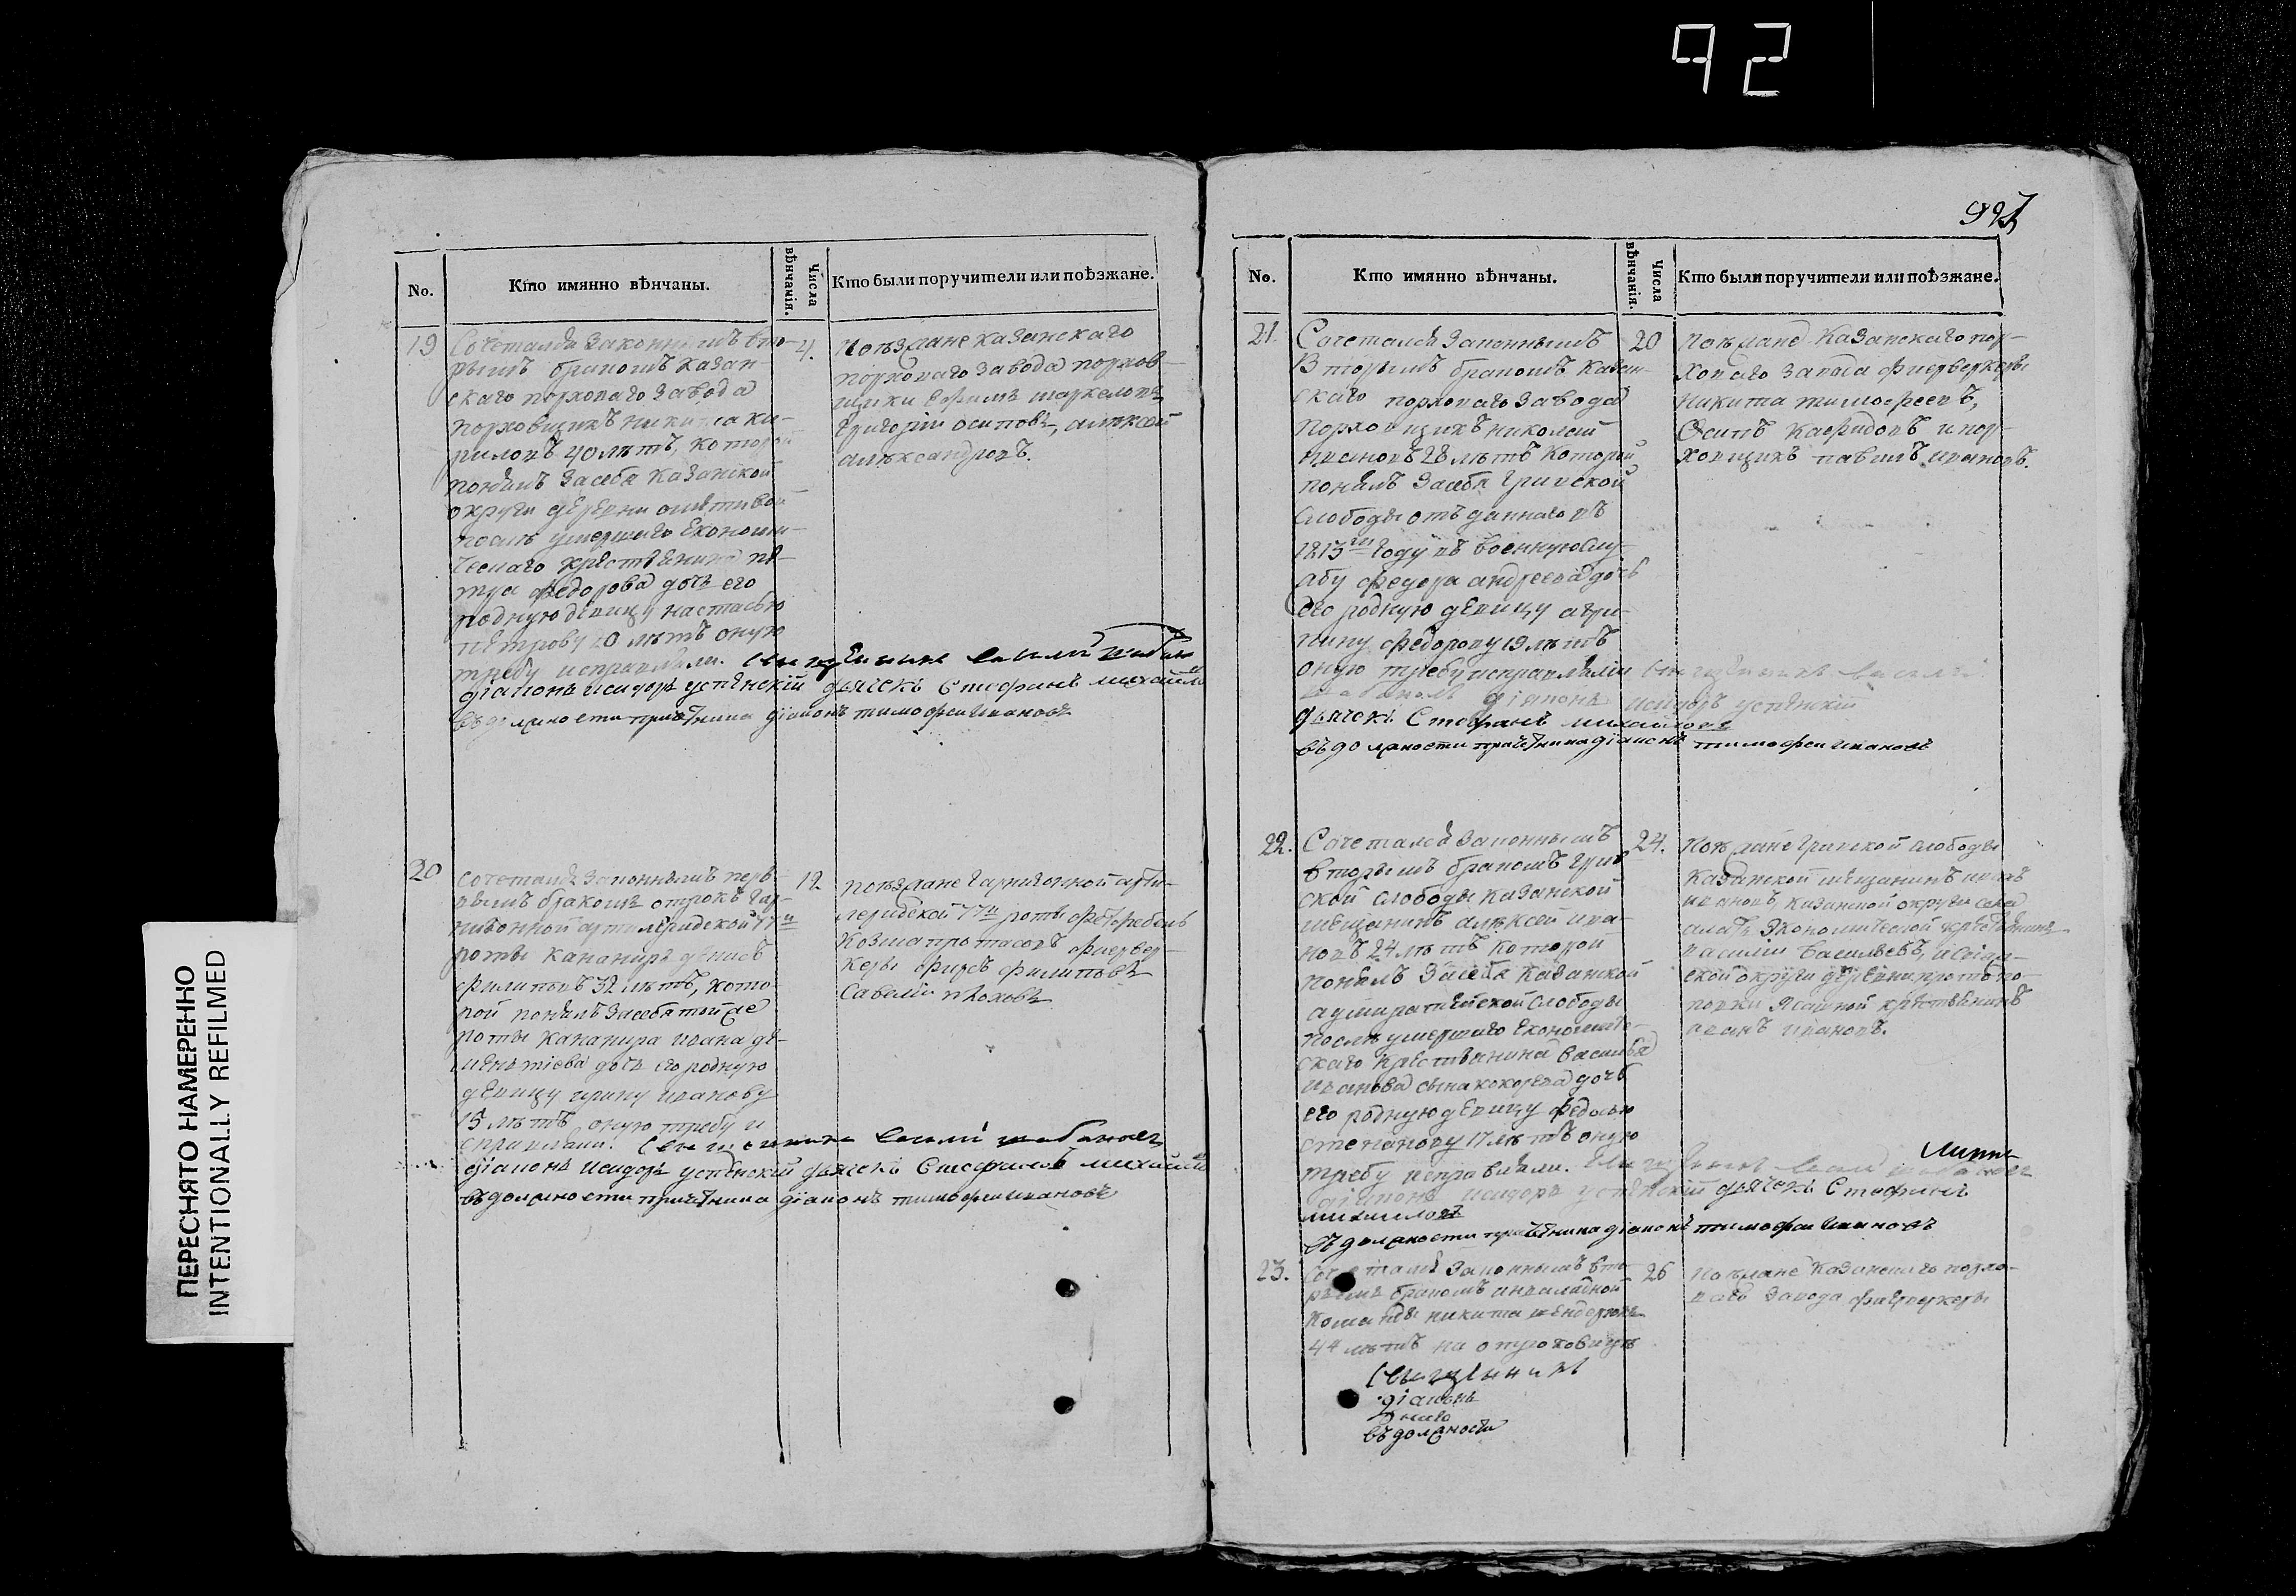 92
927
ПЕРЕСНЯТО НАМЕРЕННО
INTENTIONALLY REFILMED
No.
Кто имянно вѣнчаны.
Числа вѣнчанія.
Кто были поручители или поѣзжане.
19
Сочетался законнымъ вто-
рымъ бракомъ Казан-
скаго пороховаго завода
пороховщикъ никита ки-
риловъ 40 лѣтъ, которой
понялъ засебя казанской
округи деревни
послѣ умершаго Економи-
ческаго крестьянина пе-
тра федорова дочь его
родную девицу настасью
петрову 20 лѣтъ оную
требу исправляли. Священникъ василий
діаконъ исидоръ успенскій дьячекъ Стефанъ михайлов
въ должности причетника діаконъ тимофеи ивановъ
4.
поѣзжане казанскаго
пороховаго завода порохов-
щики ефимъ маркеловъ
григорій осиповъ, алексей
александровъ.
20
сочетался законнымъ пер-
вымъ бракомъ отрокъ гар-
низонной артилерийской 77й
роты канониръ денисъ
филиповъ 32 лѣтъ, кото-
рой понялъ засебя той же
роты канонира ивана де-
ментіева дочь его родную
девицу ирину иванову
15 лѣтъ оную требу и
справляли. Священникъ василий шабановъ
діаконъ исидоръ успенскій дьячекъ Стефанъ михайлов
въ должности причетника діаконъ тимофеи ивановъ
12
поѣзжане гарнизонной арти-
лерийской 77й роты
козма протасовъ фиервер-
керы фирсъ филиповъ
савелий
No.
Кто имянно вѣнчаны.
Числа вѣнчанія.
Кто были поручители или поѣзжане.
21.
Сочетался законнымъ
вторымъ бракомъ казан-
скаго пороховаго завода
пороховщикъ николай
ивановъ 28 лѣтъ которой
понялъ засебя гривской
слободы отъданнаго въ
1813м году въ военную слу-
жбу федора андреева дочь
его родную девицу агри-
пину федорову 19 лѣтъ
оную требу исправляли Священникъ василий
діаконъ исидоръ успенскій
дьячекъ Стефанъ михайловъ
въ должности причетника діаконъ тимофеи ивановъ
20
поѣзжане казанскаго поро-
ховаго завода фиерверкеры
никита тимофеевъ,
Осипъ и поро-
ховщикъ павелъ ивановъ.
22.
Сочетался законнымъ
вторымъ бракомъ грив
ской слободы казанской
мещанинъ алексей ива-
новъ 24 лѣтъ которой
понялъ засебя казанской
адмиралтейской слободы
послѣ умершаго економиче-
скаго крестьянина василья
иванова сына кокорева дочь
его родную девицу федосью
степанову 17 лѣтъ оную
требу исправляли. Священникъ василий шабановъ
діаконъ исидоръ успенскій дьячекъ Стефанъ
михайловъ
въ должности причетника діаконъ тимофеи ивановъ
24.
поѣзжане гривской слободы
казанской мещанинъ
ивановъ, казанской округи села
экономической крестьянинъ
василий васильевъ,
ской округи деревни
ясашной крестьянинъ
иванъ ивановъ.
23.
Сочетался законнымъ вто-
рымъ бракомъ инвалидной
команды никита
44 лѣтъ на
Священникъ
діаконъ
въ должности
26
поѣзжане казанскаго поро-
ваго завода фиерверкеры